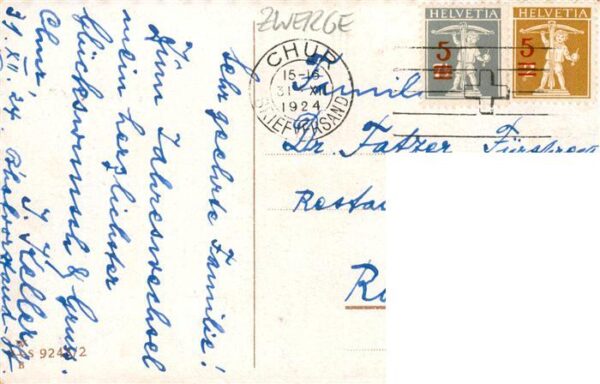 ZWERGE
HELVETIA
HELVETIA
5
5
CHUR
15-16
31 XII
1924
BRIEFVERSAND
Familie
Dr. Fatzer
Resta
R
Sehr geehrte Familie!
Zum Jahreswechsel
mein herzlichster
Glückwunsch & Gruss.
J. Keller
Chur,
31. XII. 24.
S 924 /2